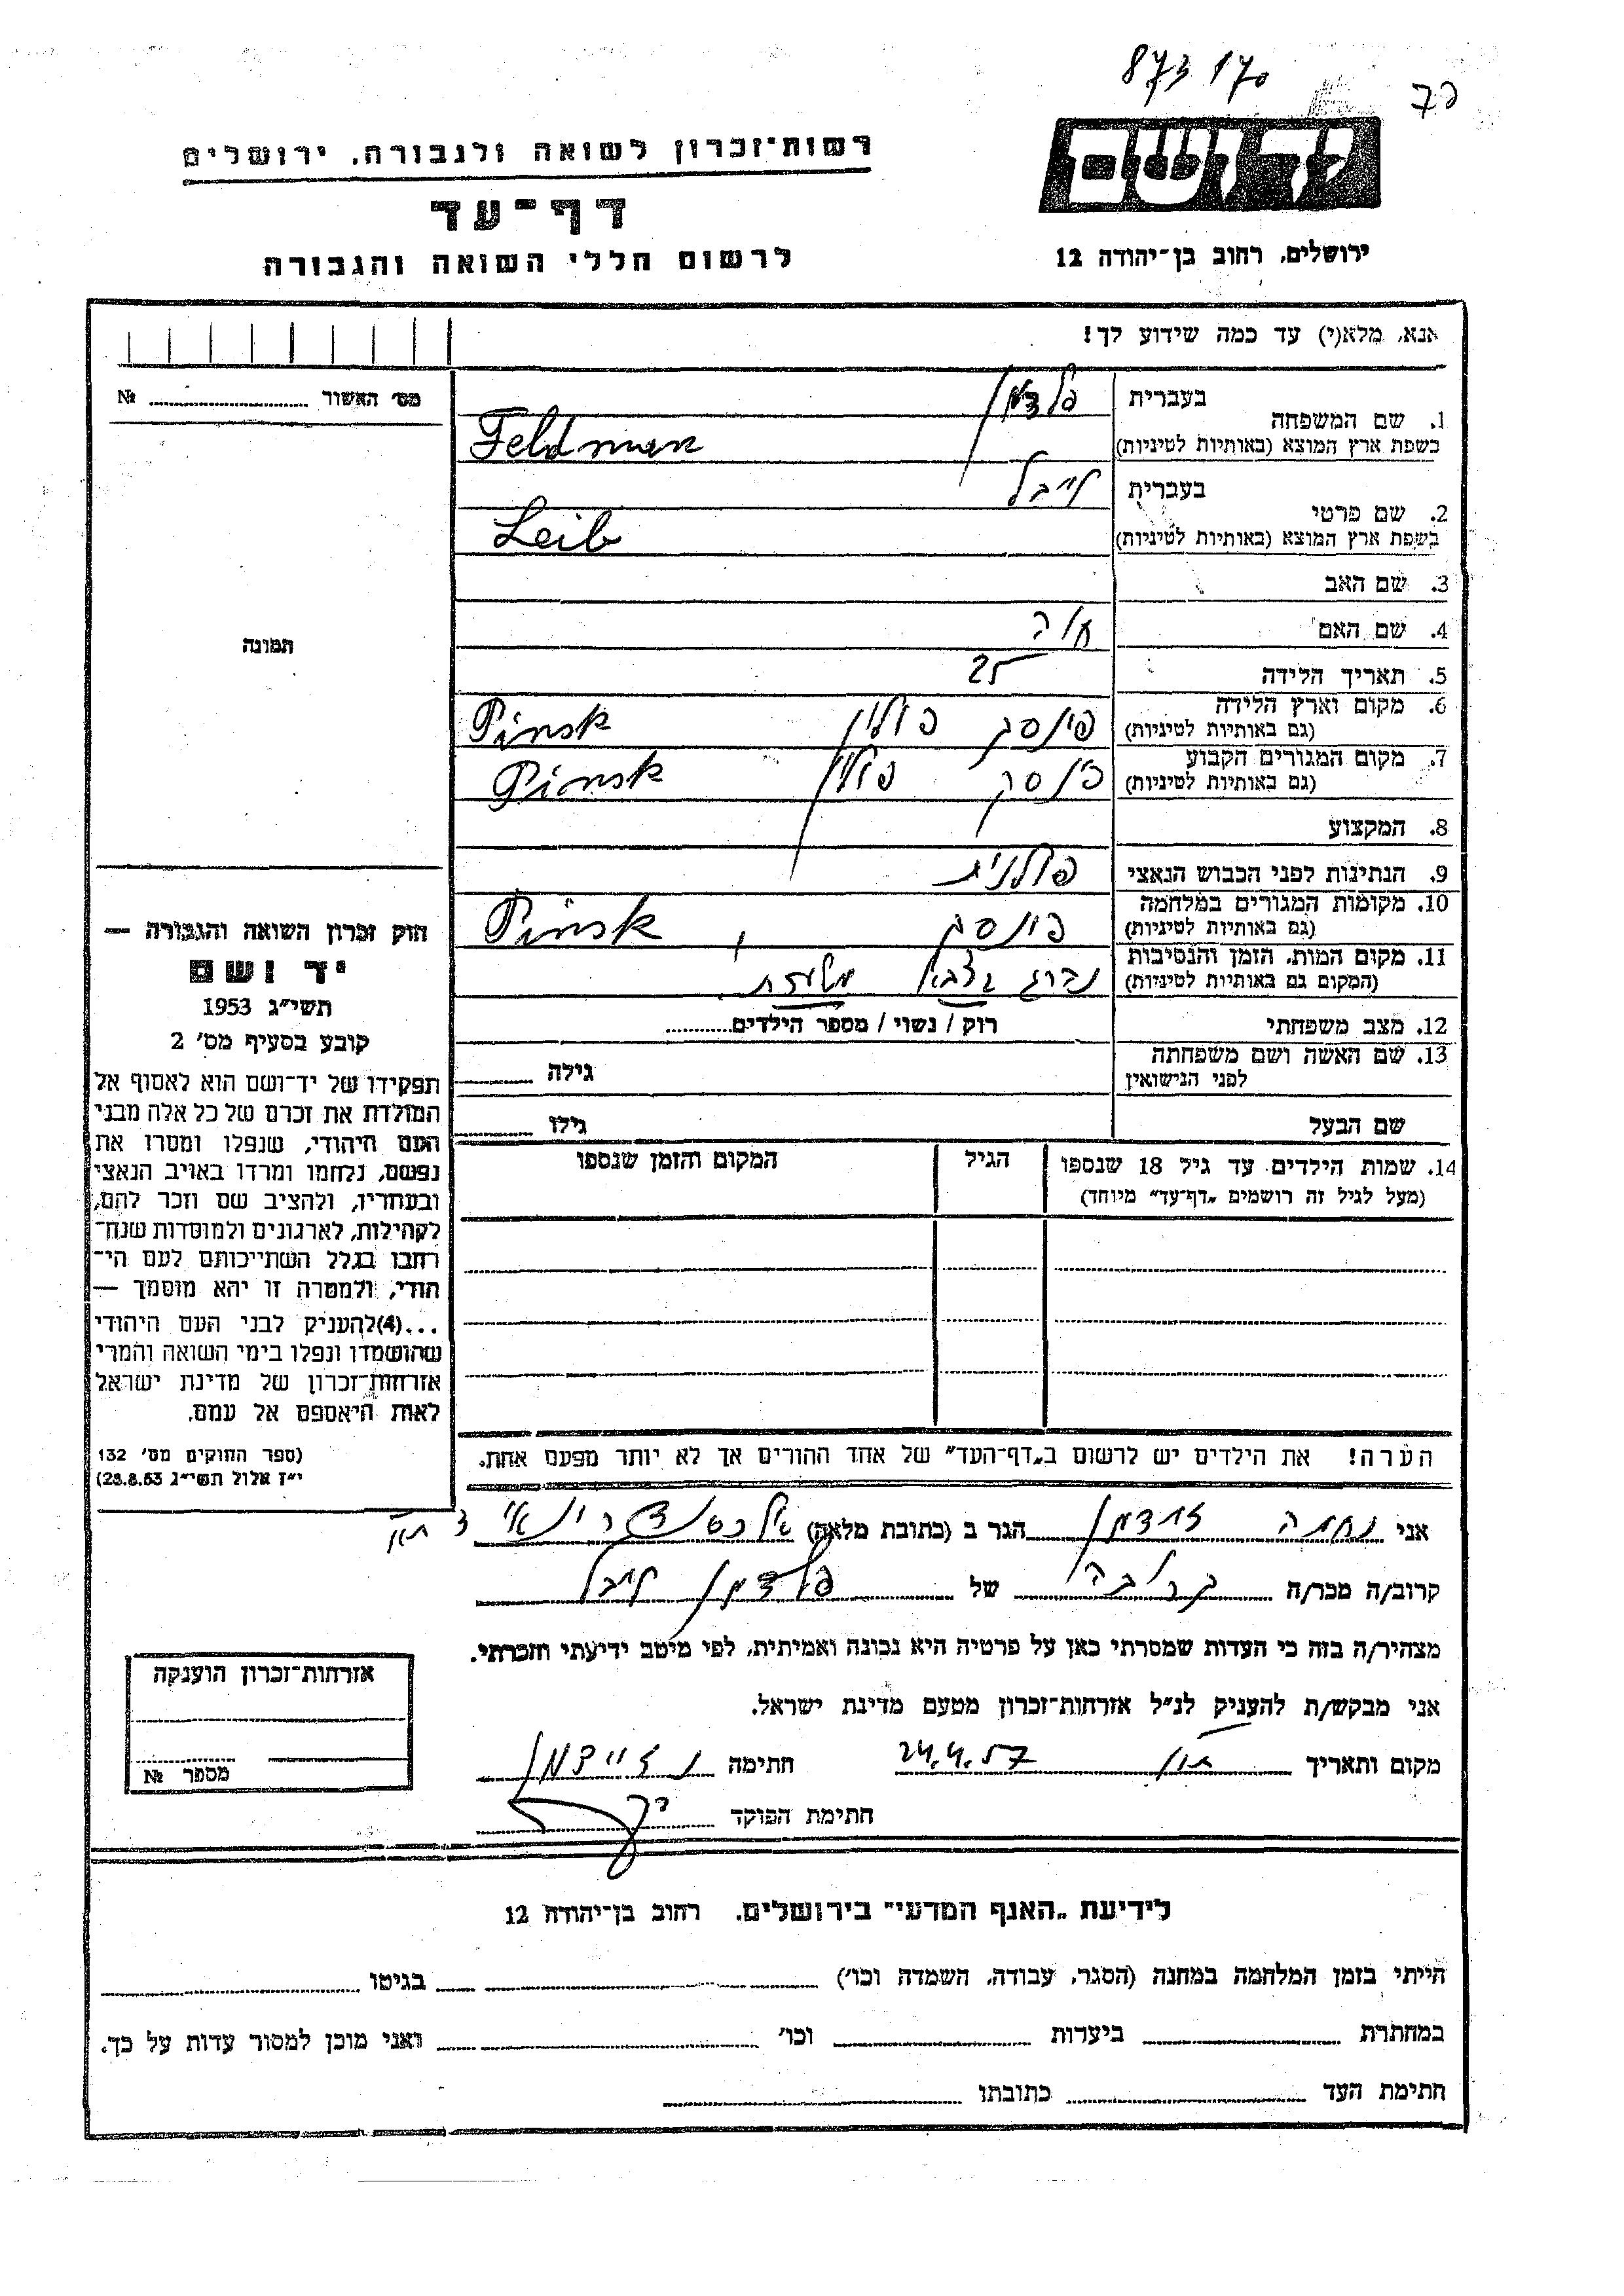 873 170
יד ושם
ירושלים, רחוב בן־יהודה 12
רשות־זכרון לשואה ולגבורה, ירושלים
דף־עד
לרשום חללי השואה והגבורה
אנא, מלא(י) עד כמה שידוע לך!
מס׳ האשור № 
1. שם המשפחה
בעברית פלדמן
בשפת ארץ המוצא (באותיות לטיניות) Feldman
2. שם פרטי
בעברית לייבל
בשפת ארץ המוצא (באותיות לטיניות) Leib
3. שם האב
4. שם האם חיה
5. תאריך הלידה 25
6. מקום וארץ הלידה
(גם באותיות לטיניות) פינסק פולין Pinsk
7. מקום המגורים הקבוע
(גם באותיות לטיניות) פינסק פולין Pinsk
8. המקצוע
9. הנתינות לפני הכבוש הנאצי פולנית
10. מקומות המגורים במלחמה
(גם באותיות לטיניות) פינסק, Pinsk
11. מקום המות, הזמן והנסיבות
(המקום גם באותיות לטיניות) נהרג בצבא
12. מצב משפחתי רוק / נשוי / מספר הילדים
13. שם האשה ושם משפחתה
לפני הנישואין גילה
שם הבעל גילו
14. שמות הילדים עד גיל 18 שנספו
(מעל לגיל זה רושמים „דף־עד״ מיוחד)
הגיל
המקום והזמן שנספו
הערה! את הילדים יש לרשום ב„דף־העד״ של אחד ההורים אך לא יותר מפעם אחת.
תמונה
חוק זכרון השואה והגבורה —
יד ושם
תשי״ג 1953
קובע בסעיף מס׳ 2
תפקידו של יד־ושם הוא לאסוף אל
המולדת את זכרם של כל אלה מבני
העם היהודי, שנפלו ומסרו את
נפשם, נלחמו ומרדו באויב הנאצי
ובעוזריו, ולהציב שם וזכר להם,
לקהילות, לארגונים ולמוסדות שנח־
רחבו בגלל השתייכותם לעם הי־
הודי, ולמטרה זו יהא מוסמך —
...(4)להעניק לבני העם היהודי
שהושמדו ונפלו בימי השואה והמרי
אזרחות־זכרון של מדינת ישראל
לאות היאספם אל עמם.
(ספר החוקים מס׳ 132
י״ז אלול תשי״ג 28.8.53)
אני נחמה זידמן הגר ב (כתובת מלאה)
קרוב/ה מכר/ה קרובה של פלדמן לייבל
מצהיר/ה בזה כי העדות שמסרתי כאן על פרטיה היא נכונה ואמיתית, לפי מיטב ידיעתי והכרתי.
אני מבקש/ת להעניק לנ״ל אזרחות־זכרון מטעם מדינת ישראל.
מקום ותאריך 24.4.57 חתימה נ זיידמן
חתימת הפוקד
אזרחות־זכרון הוענקה
מספר №
לידיעת „האגף המדעי״ בירושלים. רחוב בן־יהודה 12
הייתי בזמן המלחמה במחנה (הסגר, עבודה, השמדה וכו׳) בגיטו
במחתרת ביערות וכו׳ ואני מוכן למסור עדות על כך.
חתימת העד כתובתו